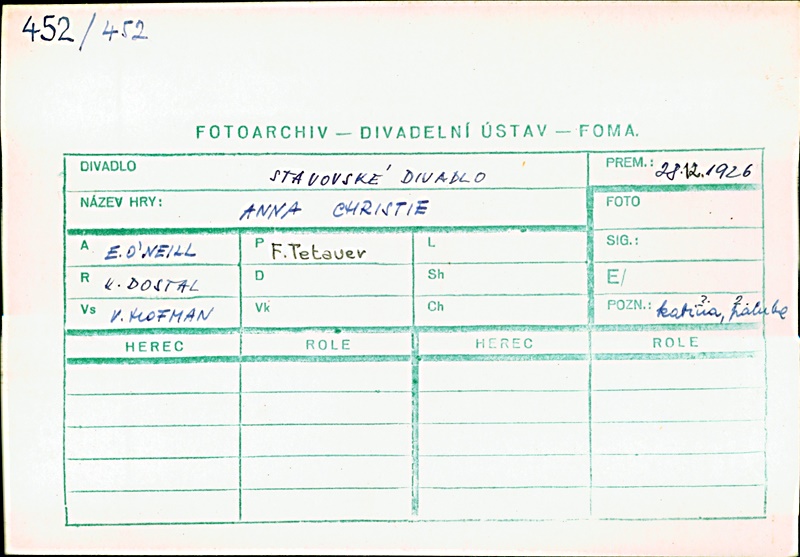 452/452
FOTOARCHIV — DIVADELNÍ ÚSTAV — FOMA.
DIVADLO STAVOVSKÉ DIVADLO PREM.: 28.12.1926
NÁZEV HRY: ANNA CHRISTIE FOTO
A E. O'NEILL P F. Tetauer L SIG.:
R K. DOSTAL D Sh E/
Vs V. HOFMAN Vk Ch POZN.:
HEREC ROLE HEREC ROLE